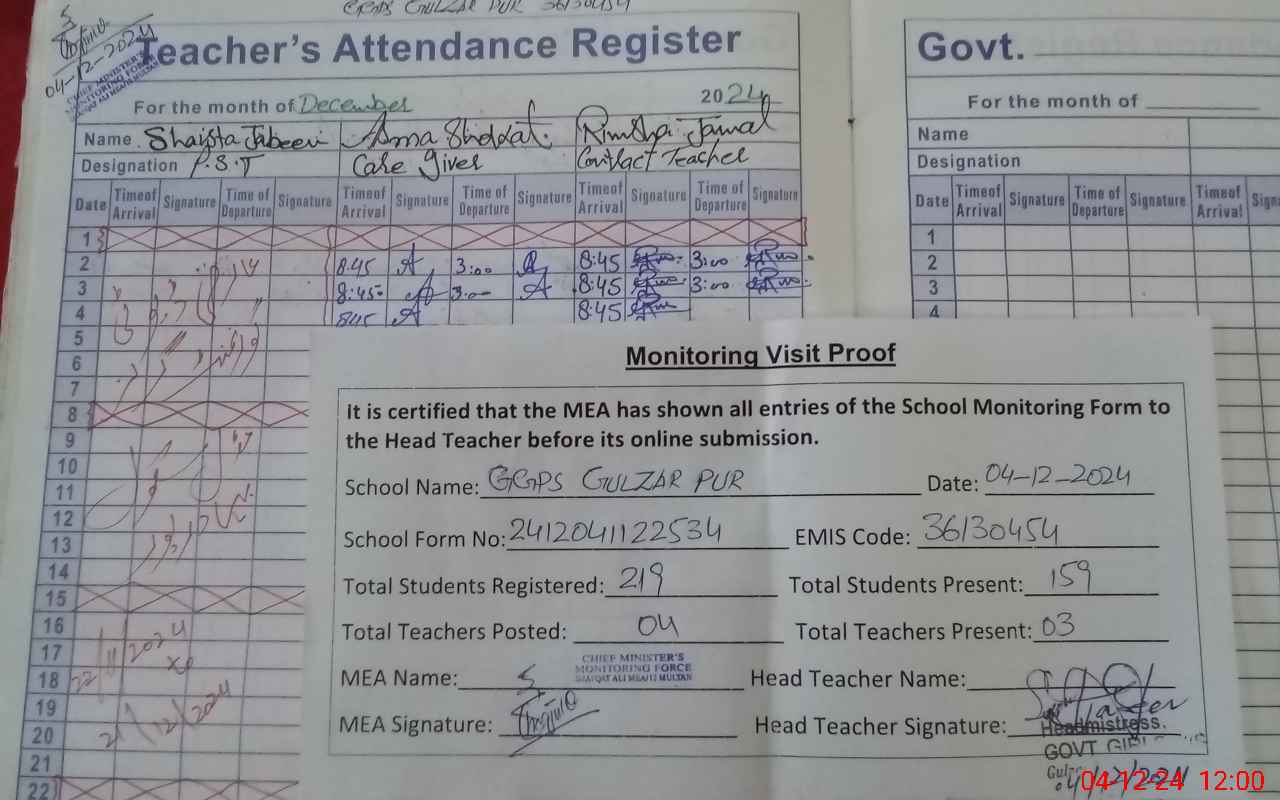 GGPS GULZAR PUR 36130454
04-12-2024
CHIEF MINISTER'S
MONITORING FORCE
Teacher's Attendance Register
For the month of December 2024
Name Shaista Jabeen Asma Shokat Rimsha Jamal
Designation P.S.T Care giver Contract Teacher
Date Timeof Arrival Signature Time of Departure Signature Timeof Arrival Signature Time of Departure Signature Timeof Arrival Signature Time of Departure Signature
1
2 8:45 A 3:00 8:45 3:00
3 8:45 3:00 A 8:45 3:00
4 845 A 8:45
5
6
7
8
9
10
11
12
13
14
15
16
17
18
19
20
21
22
22/11/2024
21/12/2024
Govt.
For the month of
Name
Designation
Date Timeof Arrival Signature Time of Departure Signature Timeof Arrival
1
2
3
4
Monitoring Visit Proof
It is certified that the MEA has shown all entries of the School Monitoring Form to
the Head Teacher before its online submission.
School Name: GGPS GULZAR PUR Date: 04-12-2024
School Form No: 2412041122534 EMIS Code: 36130454
Total Students Registered: 219 Total Students Present: 159
Total Teachers Posted: 04 Total Teachers Present: 03
CHIEF MINISTER'S
MONITORING FORCE
MEA Name: Head Teacher Name:
MEA Signature: Head Teacher Signature:
Headmistress.
GOVT
04/12/2024
04-12-24 12:00